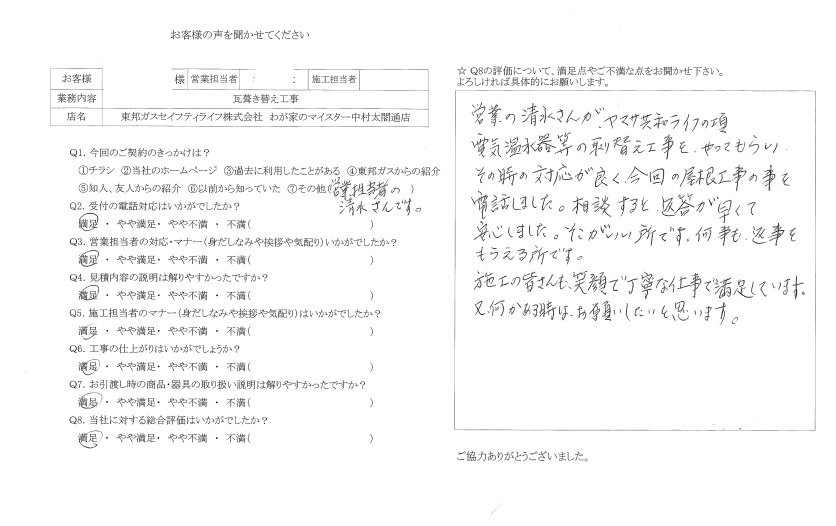 お客様の声を聞かせてください
お客様 様 営業担当者 : 施工担当者
業務内容 瓦葺き替え工事
店名 東邦ガスセイフティライフ株式会社 わが家のマイスター中村太閤通店
Q1. 今回のご契約のきっかけは?
①チラシ ②当社のホームページ ③過去に利用したことがある ④東邦ガスからの紹介
⑤知人、友人からの紹介 ⑥以前から知っていた ⑦その他(営業担当者の )
清水さんです。
Q2. 受付の電話対応はいかがでしたか?
満足 ・ やや満足・ やや不満 ・ 不満( )
Q3. 営業担当者の対応・マナー(身だしなみや挨拶や気配り)いかがでしたか?
満足 ・ やや満足・ やや不満 ・ 不満( )
Q4. 見積内容の説明は解りやすかったですか?
満足 ・ やや満足・ やや不満 ・ 不満( )
Q5. 施工担当者のマナー(身だしなみや挨拶や気配り)はいかがでしたか?
満足 ・ やや満足・ やや不満 ・ 不満( )
Q6. 工事の仕上がりはいかがでしょうか?
満足 ・ やや満足・ やや不満 ・ 不満( )
Q7. お引渡し時の商品・器具の取り扱い説明は解りやすかったですか?
満足 ・ やや満足・ やや不満 ・ 不満( )
Q8. 当社に対する総合評価はいかがでしたか?
満足 ・ やや満足・ やや不満 ・ 不満( )
☆ Q8の評価について、満足点やご不満な点をお聞かせ下さい。
よろしければ具体的にお願いします。
営業の清水さんが、ヤマサ共和ライフの頃
電気温水器等の取り替え工事を、やってもらい
その時の対応が良く、今回の屋根工事の事を
電話しました。相談すると、返答が早くて
安心しました。そこがいい所です。何事も、返事を
もらえる所です。
施工の皆さんも、笑顔で丁寧な仕事で満足しています。
又、何かある時は、お願いしたいと思います。
ご協力ありがとうございました。